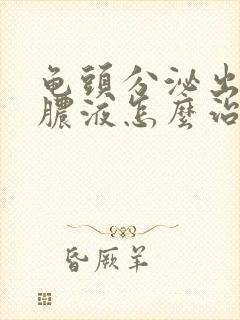 龟頭分泌出
膿液怎麼治
昏厥羊